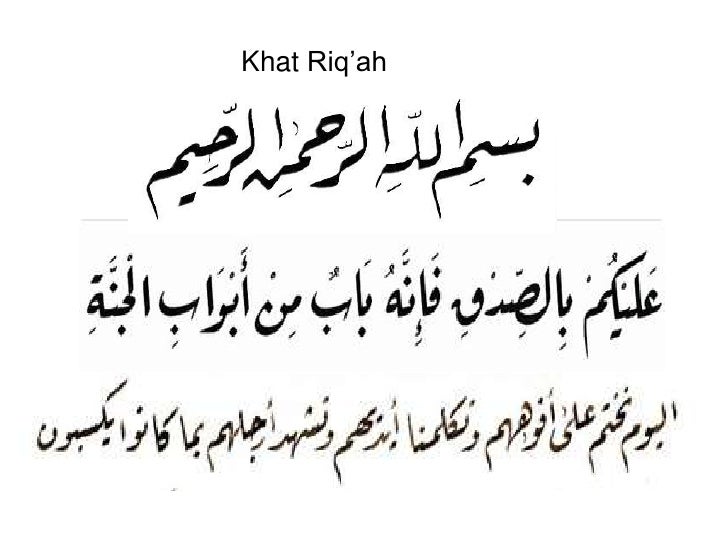 Khat Riq'ah
بسم الله الرحمن الرحيم
عَلَيْكُمْ بِالصِّدْقِ فَإِنَّهُ بَابٌ مِنْ أَبْوَابِ الْجَنَّةِ
اليوم نختم على أفوههم وتكلمنا أيديهم وتشهد أرجلهم بما كانوا يكسبون